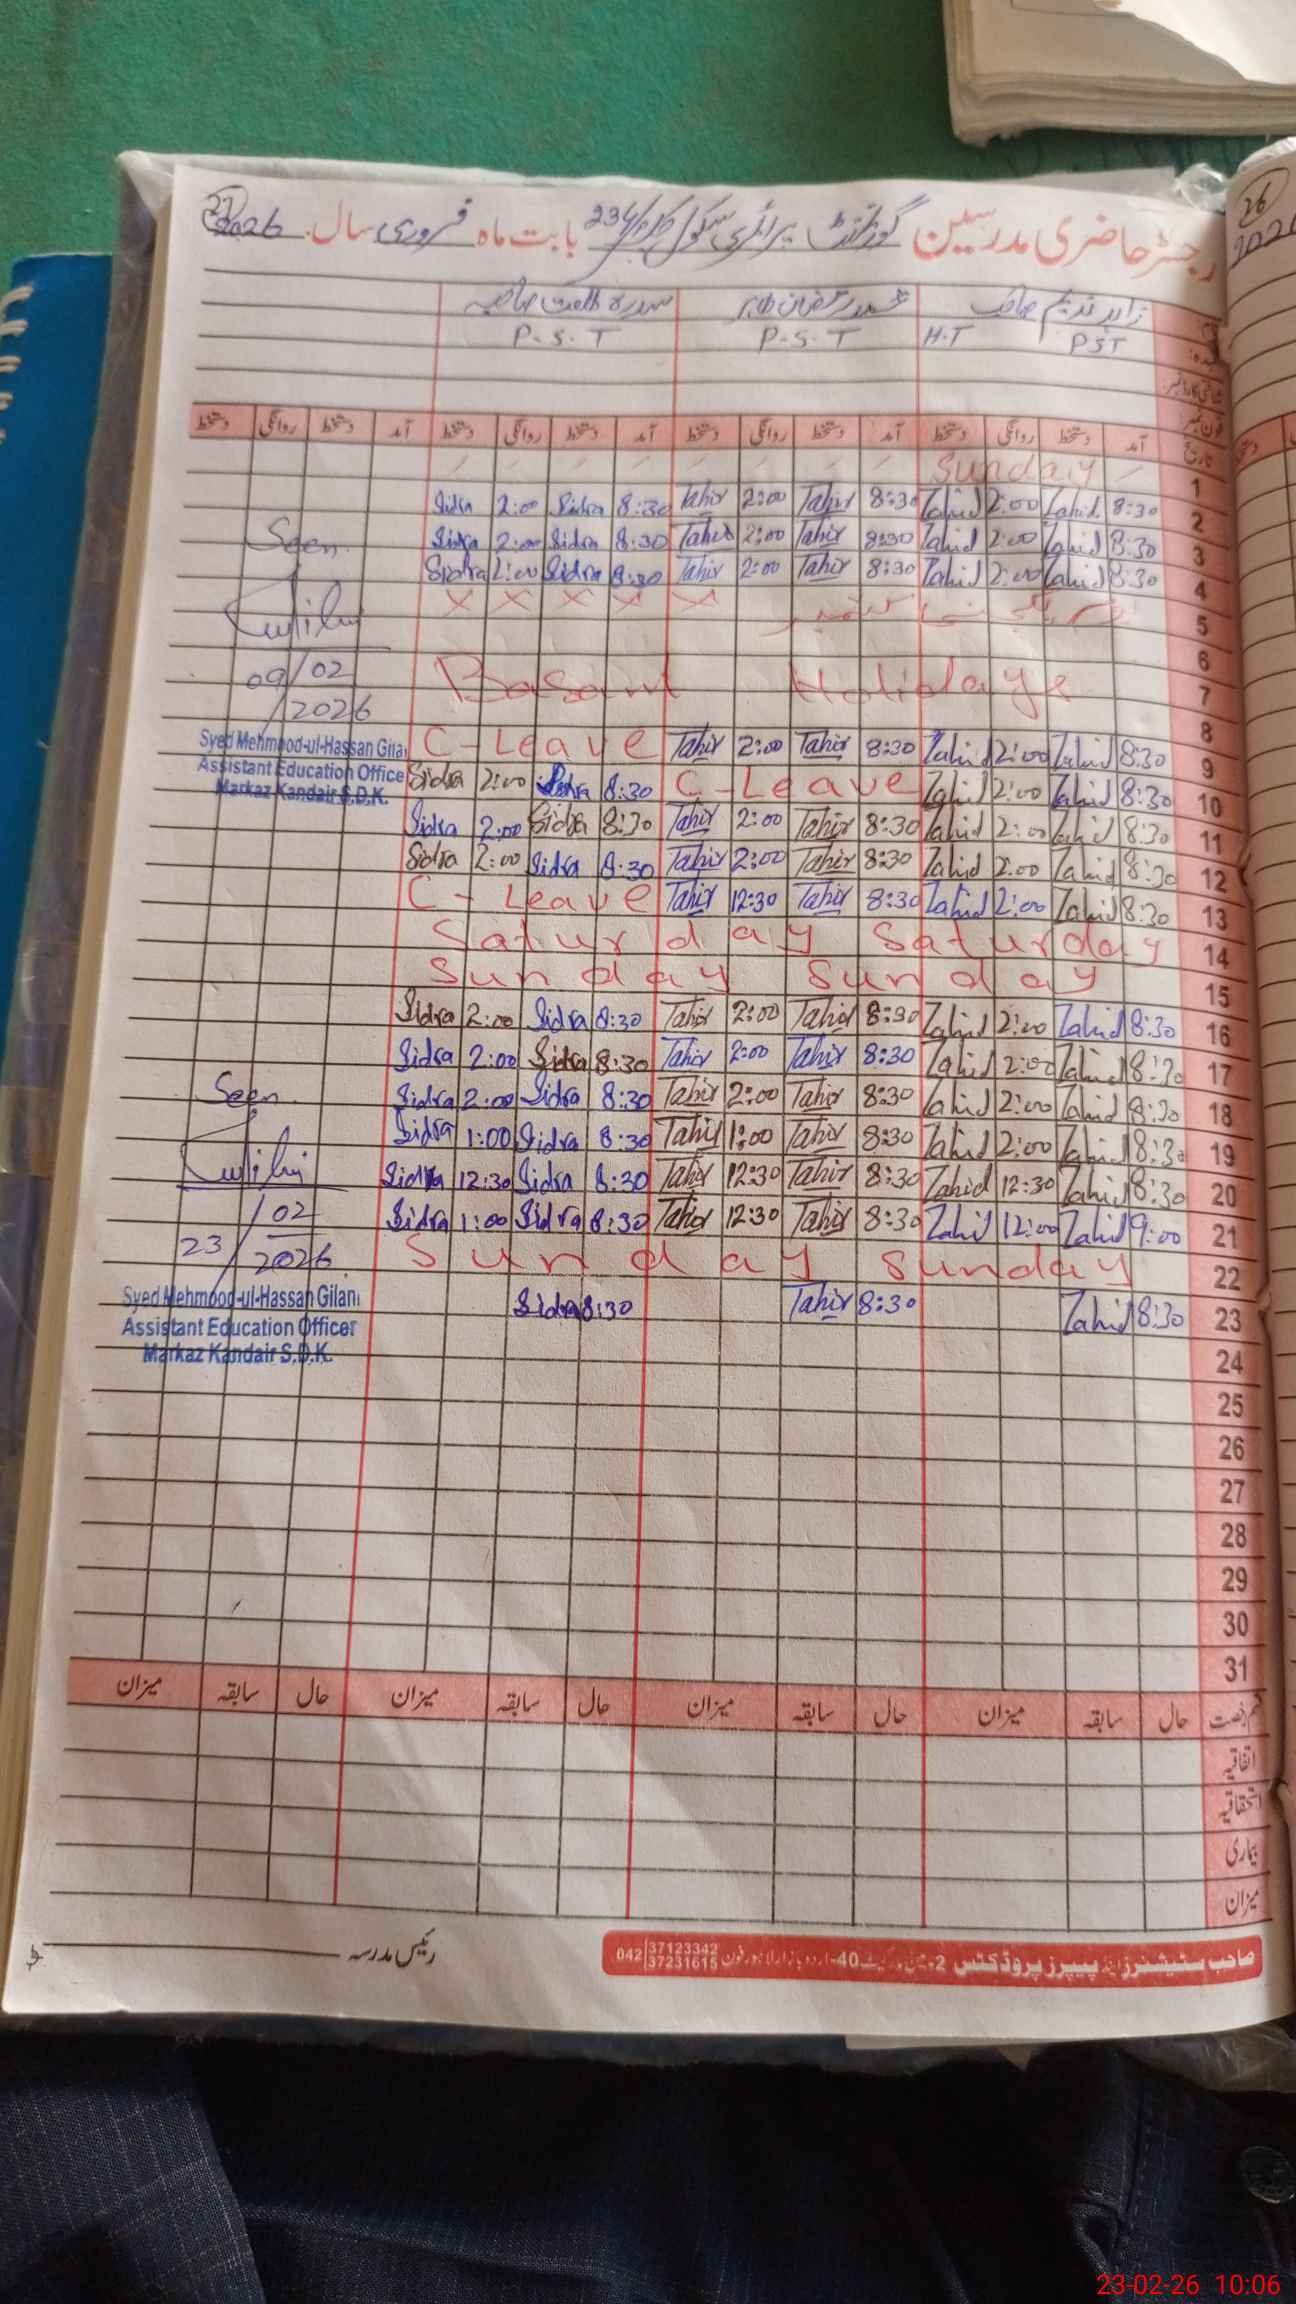 رجسٹر حاضری مدرسین گورنمنٹ پرائمری سکول 234 بابت ماہ فروری سال 2026
27
26
زاہد ندیم صاحب محمد رمضان طاہر سدرہ طلعت صاحبہ
PST H.T P.S.T P.S.T
تاریخ آمد دستخط روانگی دستخط آمد دستخط روانگی دستخط آمد دستخط روانگی دستخط آمد دستخط روانگی دستخط
Sunday 1
Sidra 2:00 Sidra 8:30 Tahir 2:00 Tahir 8:30 Zahid 2:00 Zahid 8:30 2
Sidra 2:00 Sidra 8:30 Tahir 2:00 Tahir 8:30 Zahid 2:00 Zahid 8:30 3
Sidra 2:00 Sidra 8:30 Tahir 2:00 Tahir 8:30 Zahid 2:00 Zahid 8:30 4
X X X X X کشمیر 5
6
Basant Holidays 7
8
C-Leave Tahir 2:00 Tahir 8:30 Zahid 2:00 Zahid 8:30 9
Sidra 2:00 Sidra 8:30 C-Leave Zahid 2:00 Zahid 8:30 10
Sidra 2:00 Sidra 8:30 Tahir 2:00 Tahir 8:30 Zahid 2:00 Zahid 8:30 11
Sidra 2:00 Sidra 8:30 Tahir 2:00 Tahir 8:30 Zahid 2:00 Zahid 8:30 12
C-Leave Tahir 12:30 Tahir 8:30 Zahid 2:00 Zahid 8:30 13
Saturday Saturday 14
Sunday Sunday 15
Sidra 2:00 Sidra 8:30 Tahir 2:00 Tahir 8:30 Zahid 2:00 Zahid 8:30 16
Sidra 2:00 Sidra 8:30 Tahir 2:00 Tahir 8:30 Zahid 2:00 Zahid 8:30 17
Sidra 2:00 Sidra 8:30 Tahir 2:00 Tahir 8:30 Zahid 2:00 Zahid 8:30 18
Sidra 1:00 Sidra 8:30 Tahir 1:00 Tahir 8:30 Zahid 2:00 Zahid 8:30 19
Sidra 12:30 Sidra 8:30 Tahir 12:30 Tahir 8:30 Zahid 12:30 Zahid 8:30 20
Sidra 1:00 Sidra 8:30 Tahir 12:30 Tahir 8:30 Zahid 12:00 Zahid 9:00 21
Sunday Sunday 22
Sidra 8:30 Tahir 8:30 Zahid 8:30 23
24
25
26
27
28
29
30
31
Seen
09/02
2026
Syed Mehmood-ul-Hassan Gilani
Assistant Education Office
Markaz Kandair S.D.K.
Seen
23/02
2026
Syed Mehmood-ul-Hassan Gilani
Assistant Education Officer
Markaz Kandair S.D.K.
قسم رخصت حال سابقہ میزان حال سابقہ میزان حال سابقہ میزان حال سابقہ میزان
اتفاقیہ
استحقاقیہ
بیماری
میزان
رئیس مدرسہ
صاحب سٹیشنرز اینڈ پیپرز پروڈکٹس 2- 40-اردو بازار لاہور فون 042 37123342
37231615
23-02-26 10:06